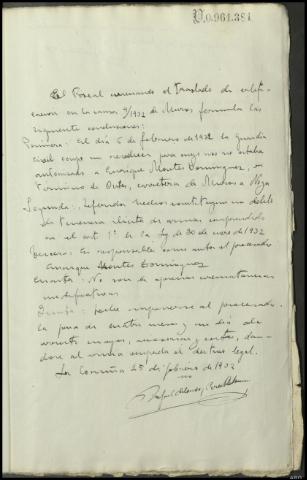 V.0.961.381
El Fiscal evacuando el traslado de califi-
cación en la causa 9/1932 de Muros, formula las
siguientes conclusiones:
Primera: El día 5 de febrero de 1932 la guardia
civil ocupó un revólver para cuyo uso no estaba
autorizado a Enrique Montes Dominguez, en
término de Outes, carretera de Muros a Noya
Segunda: referidos hechos constituyen un delito
de tenencia ilícita de armas comprendido
en el art. 1º de la ley de 30 de enero de 1932
Tercera: Es responsable como autor el procesado
Enrique Montes Dominguez
Cuarta: No son de apreciar circunstancias
modificativas
Quinta: procede imponerse al procesado
la pena de cuatro meses y un día de
arresto mayor, accesorias y costas, dan-
dose al arma ocupada el destino legal.
La Coruña 25 de febrero de 1932